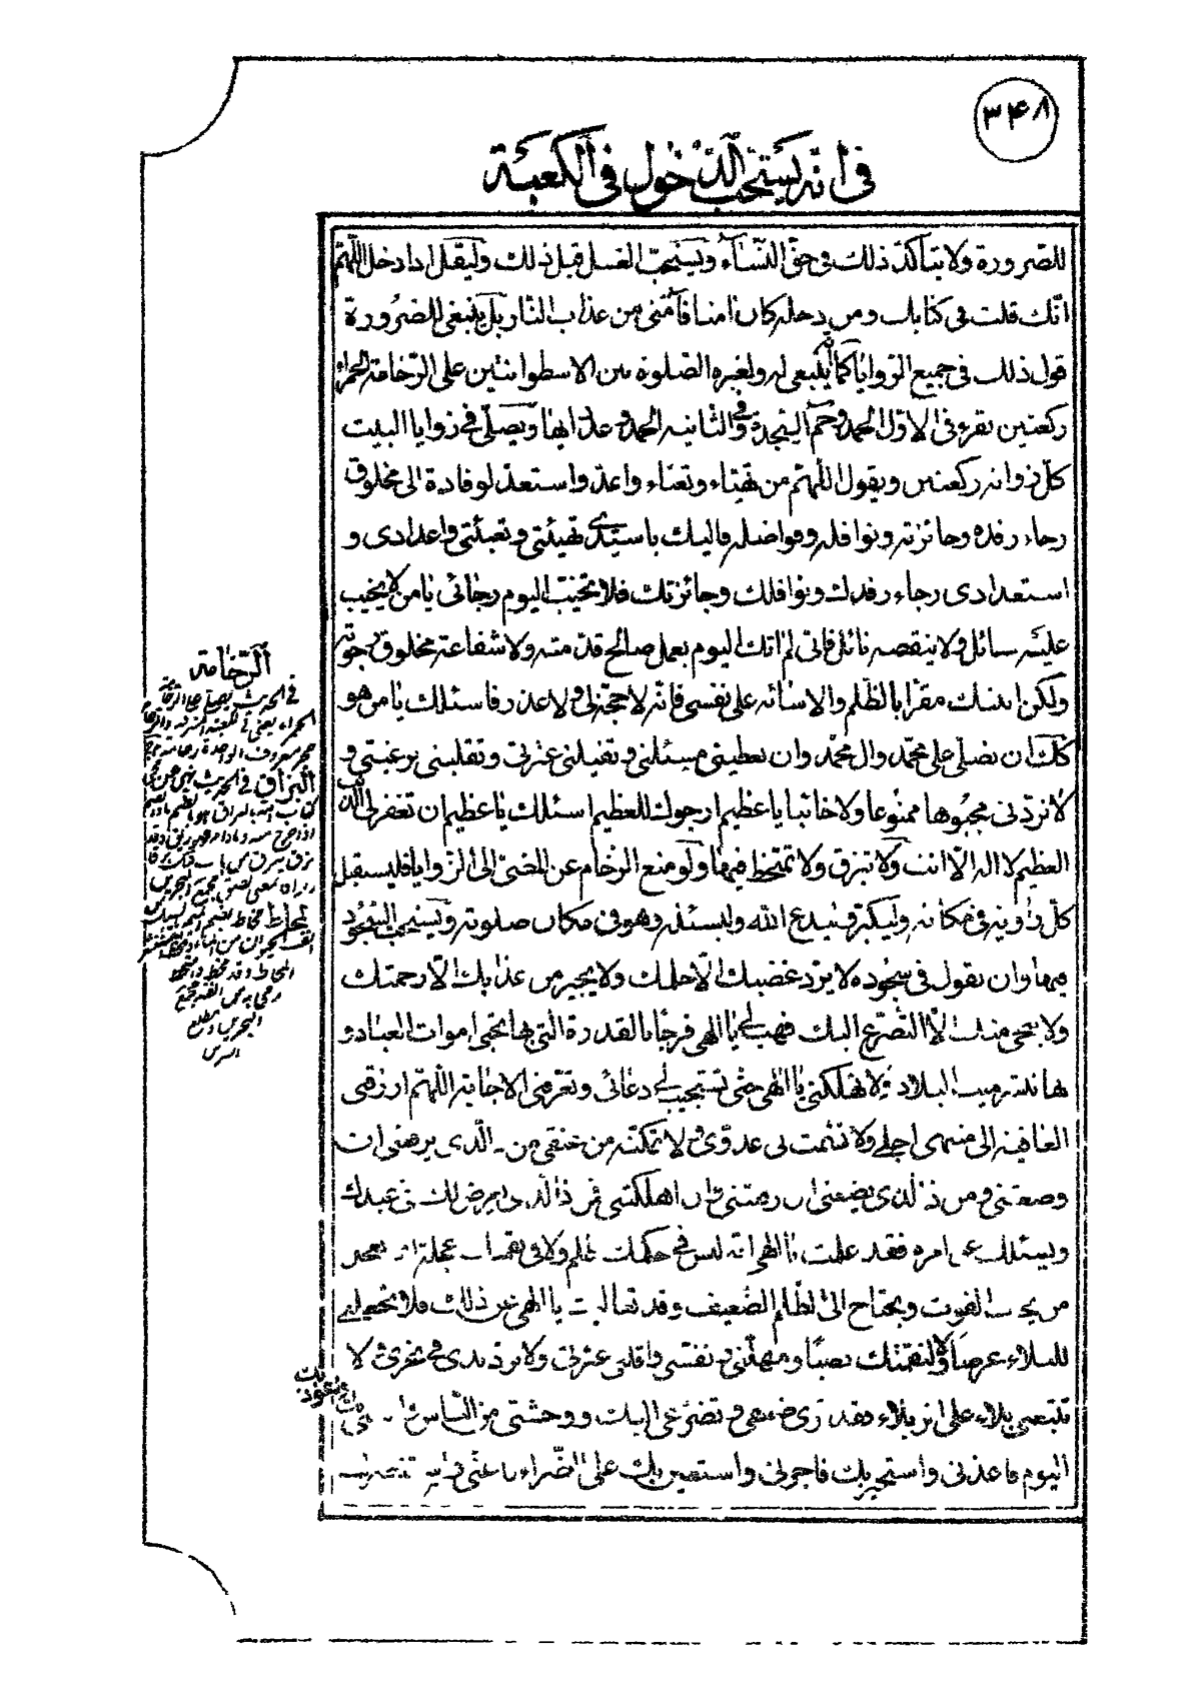 ٣۴٨
فی انه يستحب الدخول فی الكعبة
للصرورة ولا يتأكد ذلك فی حق النسآء ويستحب الغسل قبل ذلك وليقل اذا دخل اللهم
انك قلت فی كتابك ومن دخله كان امنا فآمنی من عذاب النار بل ينبغی للضرورة
قول ذلك فی جميع الزوايا كما ينبغی له ولغيره الصلوة بين الاسطوانتين علی الرخامة الحمراء
ركعتين يقرء فی الاول الحمد وحم السجدة وفی الثانيه الحمد وعدد ايها ويصلی فی زوايا البيت
كل زوايه ركعتين ويقول اللهم من تهيّاء وتعباء واعد واستعد لوفادة الی مخلوق
رجاء رفده وجائزته ونوافله وفواضله فاليك يا سيدی تهيئتی وتعبئتی واعدادی و
استعدادی رجاء رفدك ونوافلك وجائزتك فلا تخيب اليوم رجائی يا من لا يخيب
عليه سائل ولا ينقصه نائل فانی لم اتك اليوم بعمل صالح قدمته ولا شفاعة مخلوق رجوته
ولكن اتيتك مقرا بالظلم والاسائه علی نفسی فانه لا حجة لی ولا عذر فاسئلك يا من هو
كذلك ان تصلی علی محمد وال محمد وان تعطينی مسئلتی وتقيلنی عثرتی وتقلبنی برغبتی و
لا تردنی مجبوها ممنوعا ولا خائبا يا عظيم ارجوك للعظيم اسئلك يا عظيم ان تغفر لی الذنب
العظيم لا اله الا انت ولا تبزق ولا تمتخط فيها ولو منع الزحام عن المضی الی الزوايا فليستقبل
كل زاوية فی مكانه وليكبر وليدع الله وليسئله وهو فی مكان صلوته ويستحب السجود
فيها وان يقول فی سجوده لا يرد غضبك الا حلمك ولا يجير من عذابك الا رحمتك
ولا ينجی منك الا التضرع اليك فهب لی يا الهی فرجا بالقدرة التی بها تحيی اموات العباد و
بها تنشر ميت البلاد ولا تهلكنی يا الهی حتی تستجيب لی دعائی وتعرفنی الاجابة اللهم ارزقنی
العافيه الی منتهی اجلی ولا تشمت بی عدوی ولا تمكنه من عنقی من الذی يرفعنی ان
وضعتنی ومن ذا الذی يضعنی ان رفعتنی وان اهلكتنی فمن ذا الذی يعرض لك فی عبدك
ويسئلك عن امره فقد علمت يا الهی انه ليس فی حكمك ظلم ولا فی نقمتك عجلة انما يعجل
من يخاف الفوت ويحتاج الی الظلم الضعيف وقد تعاليت يا الهی عن ذلك فلا تجعلنی
للبلاء غرضا ولا لنقمتك نصبا ومهلنی ونفسی واقلنی عثرتی ولا ترد يدی فی نحری ولا
تتبعنی ببلاء علی اثر بلاء فقد تری ضعفی وتضرعی اليك ووحشتی من الناس وانسی بك اعوذ بك
اليوم فاعذنی واستجير بك فاجرنی واستعين بك علی الضراء فاعنی
الرخامة
فی الحديث يصلی علی الرخامة
الحمراء يعنی فی الكعبة
حجر معروف الواحدة رخامة
البزاق فی الحديث نهی عن محو
كتاب الله بالبزاق هو بالضم
اذا خرج منه وما دام فهو ريق
بزق يبزق
بمعنی بصق مجمع البحرين
المخاط مخاط بضم الميم
انف الحيوان من الماء
المخاط وقد مخط وامتخط
رمی به من انفه مجمع
البحرين